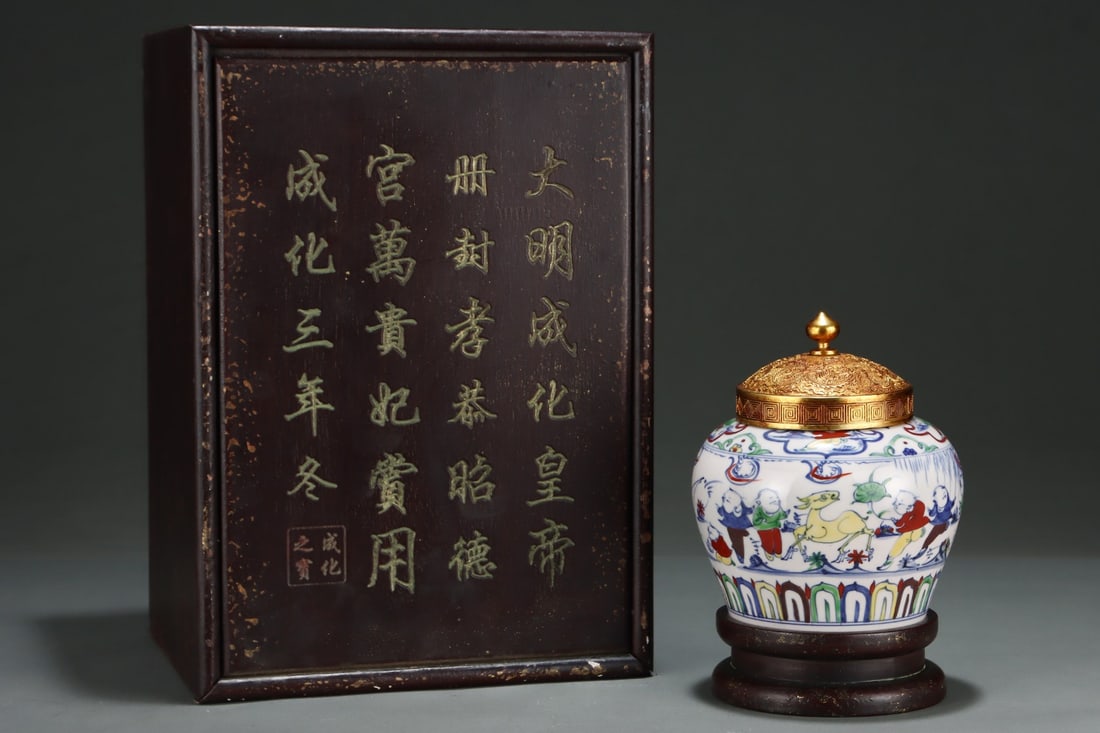 大明成化皇帝
册封孝恭昭德
宫萬貴妃賞用
成化三年冬
成化之寳